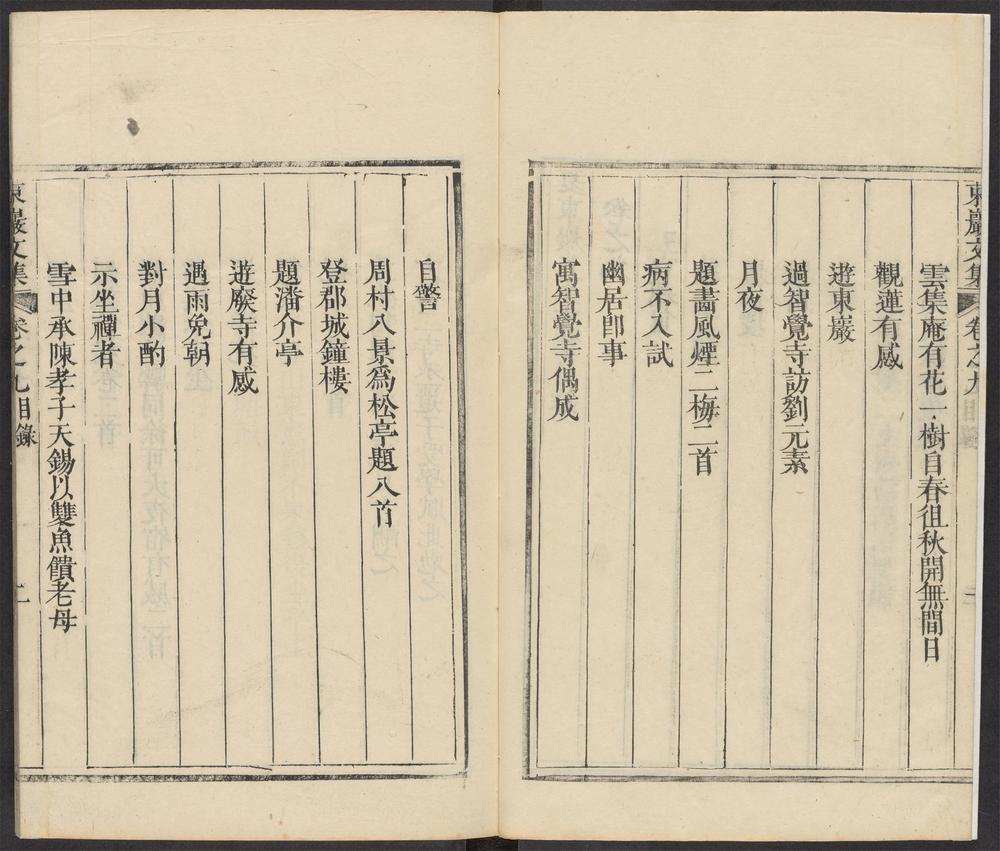 東巖文集 卷之九目錄
雲集庵有花一樹自春徂秋開無間日
觀蓮有感
遊東巖
過智覺寺訪劉元素
月夜
題畵風煙二梅二首
病不入試
幽居卽事
寓智覺寺偶成
自警
周村八景爲松亭題八首
登郡城鐘樓
題潘介亭
遊廢寺有感
遇雨免朝
對月小酌
示坐禪者
雪中承陳孝子天錫以雙魚饋老母
東巖文集 卷之九目錄